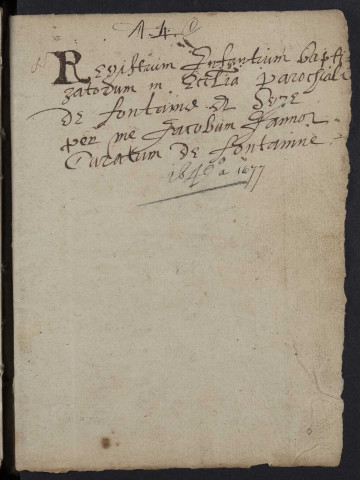 Registrum Infantium bapti
zatorum in Ecclia parochiali
de fontaine et
per me Jacobum Jannor
Curatum de fontainne
à 1677